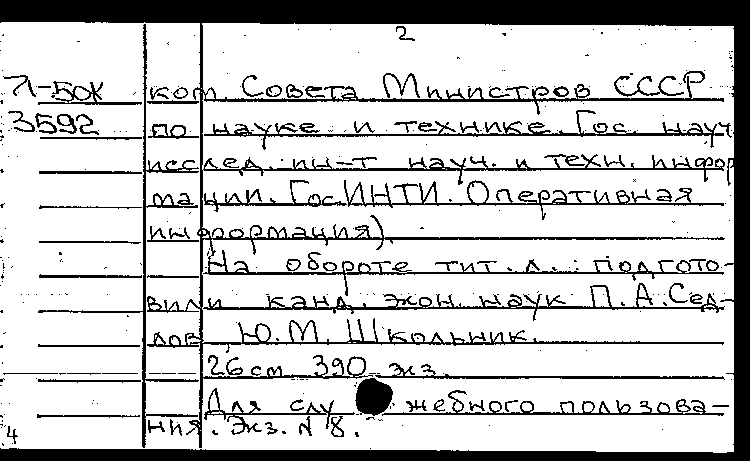 2
Л-БОК ком. Совета Министров СССР
3592 по науке и технике. Гос. науч
исслед. ин-т науч. и техн. инфор
мации. ГосИНТИ. Оперативная
информация).
На обороте тит. л.: подгото-
вили канд. экон. наук П.А.Сед-
лов, Ю.М. Школьник.
26 см 390 экз.
Для слу жебного пользова-
ния. Экз. N 8.
4